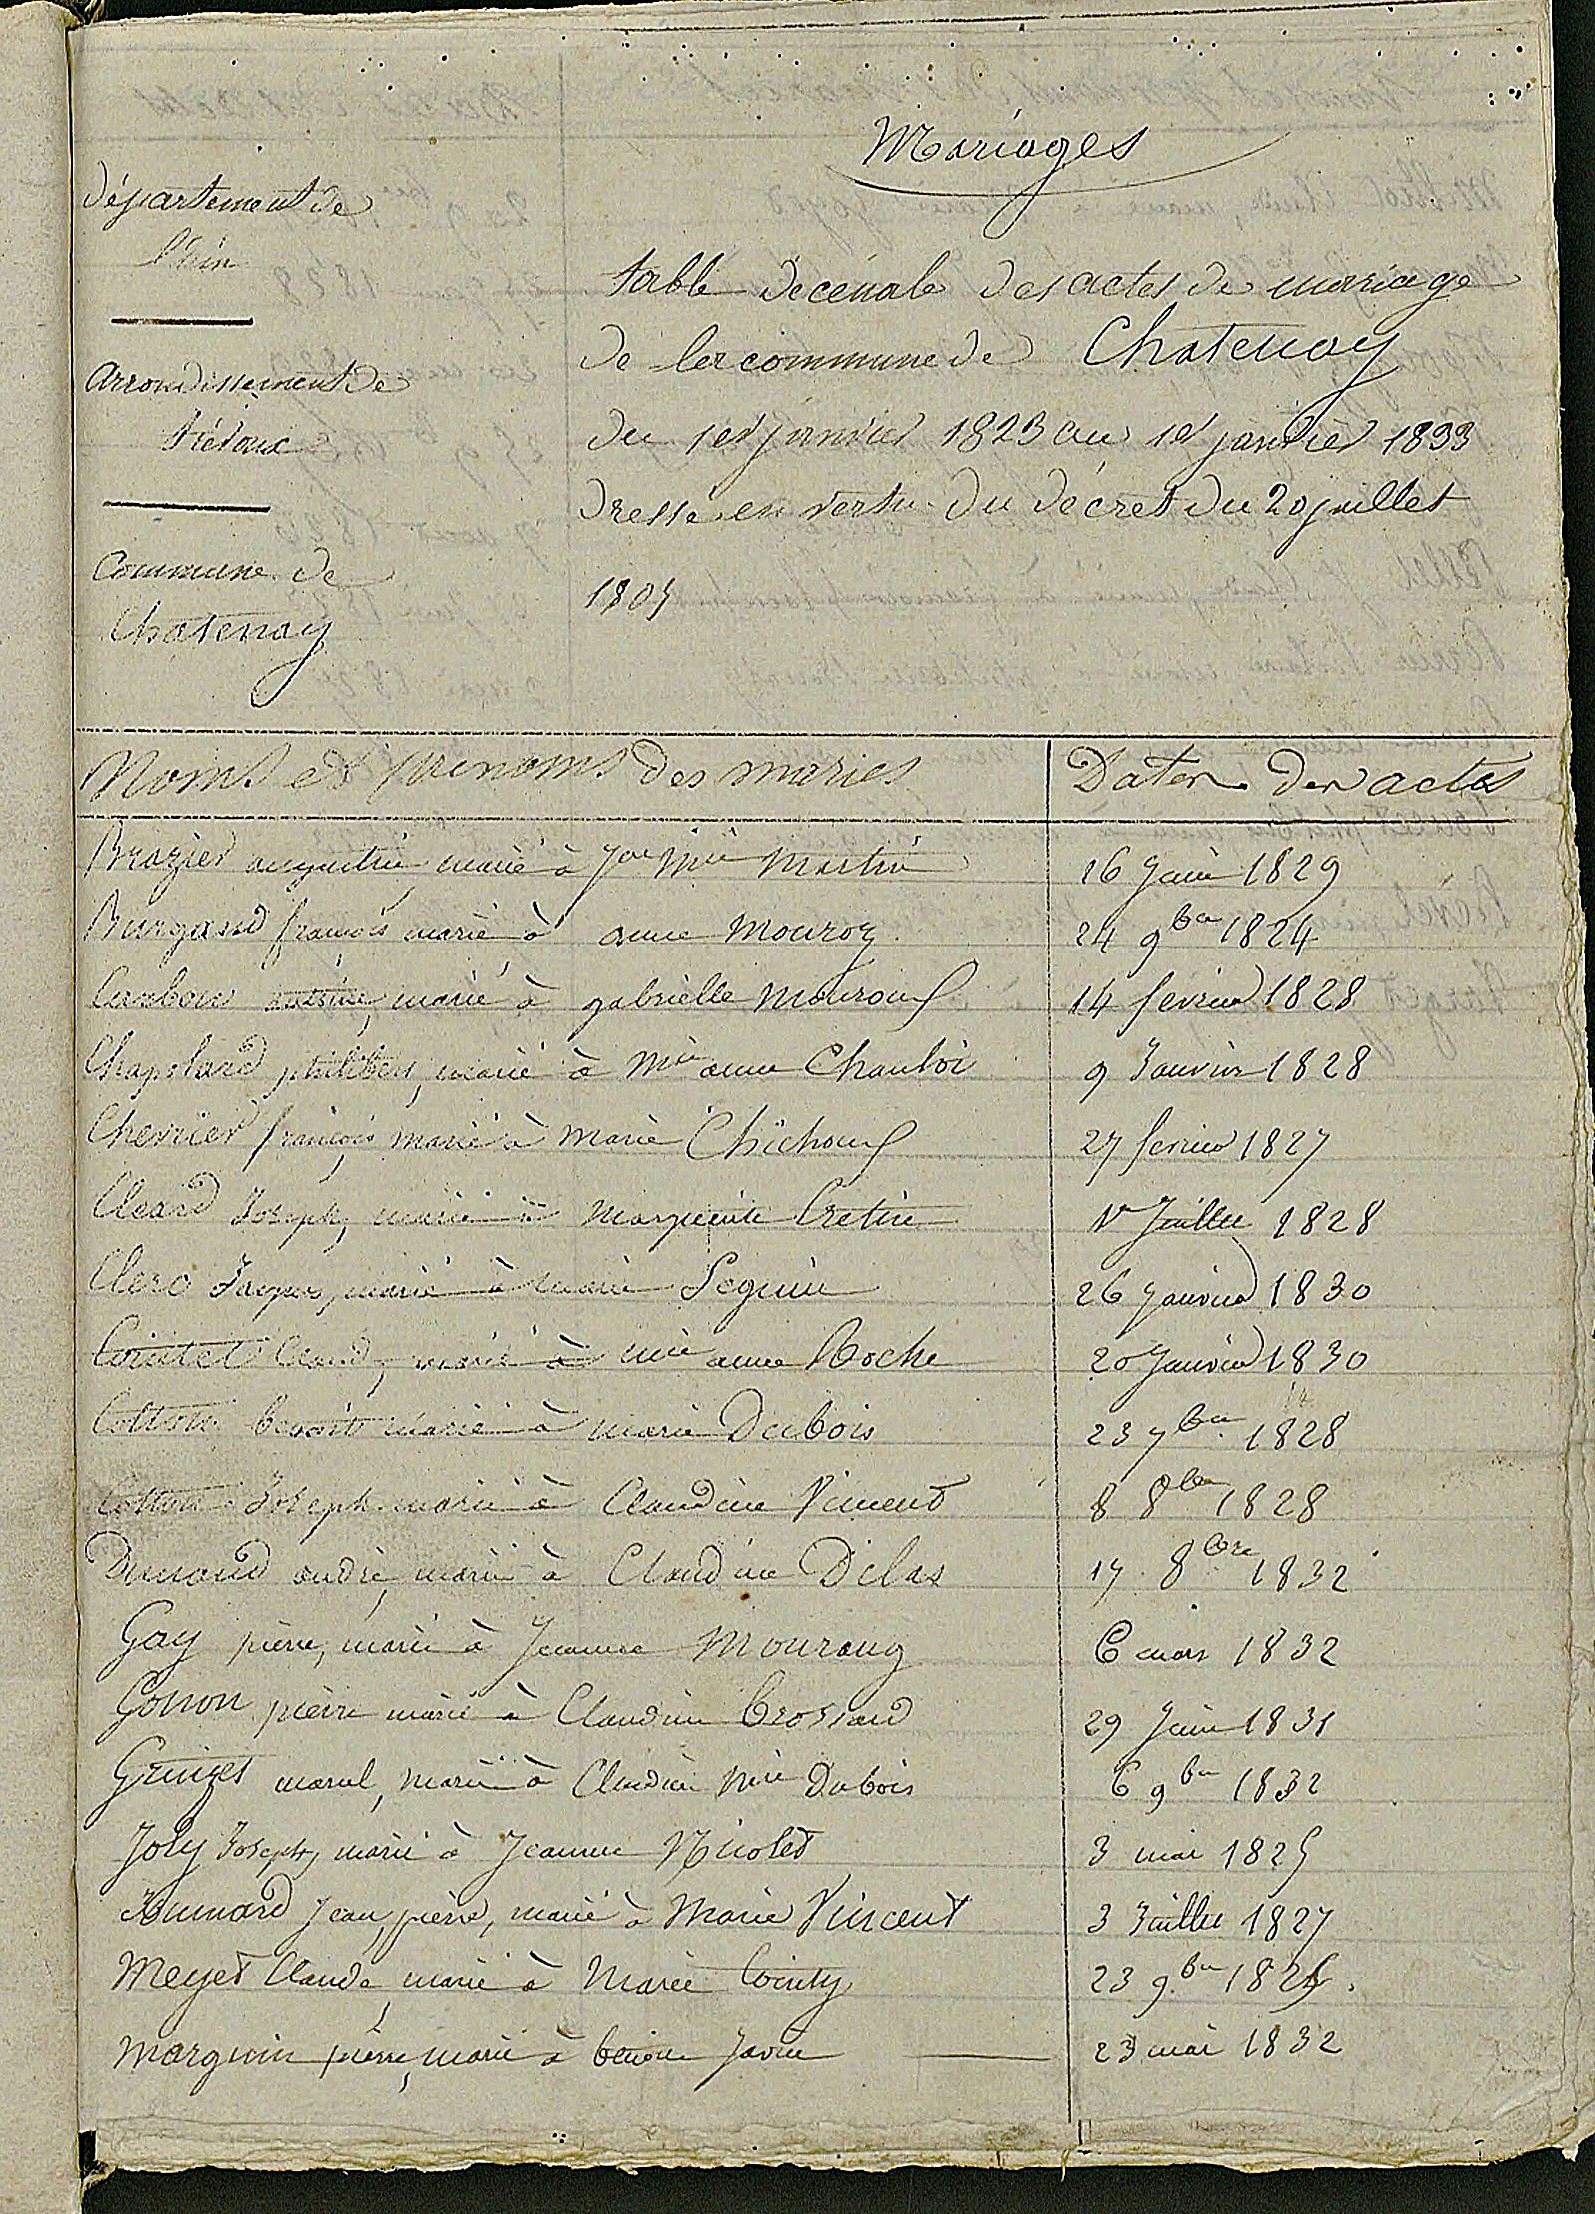 Mariages
Département de
l'ain
Arrondissement de
Trévoux
Commune de
Chatenay
table décénale des actes de mariage
de la commune de Chatenay
du 1er janvier 1823 au 1er janvier 1833
dressé en vertu du décret du 20 juillet
1807
Noms et prénoms des mariés
Dates des actes
Brazier augustin marié à Jne Mie Martin 16 Juin 1829
Burgaud françois marié à anne Mouroz 24 9bre 1824
marié à gabrielle Mouroux 14 fevrier 1828
Chapoland philibert, marié à Mie anne Chanloi 9 Janvier 1828
Chevrier françois marié à Marie Chichoux 27 fevrier 1827
Cleard Joseph, marié à Marguerite Cretin 1er Juillet 1828
Clerc Jacques, marié à marie Seguin 26 Janvier 1830
Cointet Claud, marié à mie anne Roche 20 Janvier 1830
Cotton benoit marié à marie Dubois 23 7bre 1828
Cotton Joseph marié à Claudine Vincent 8 8bre 1828
Dunand andré, marié à Claudine Dilas 17 8bre 1832
Gay pierre, marié à Jeanne Mouroug 6 mars 1832
Gonon pierre marié à Claudine Brossard 29 Juin 1831
Gringet marcel, marié à Claudine Mie Dubois 6 9bre 1832
Joly Joseph, marié à Jeanne Nicolet 3 mai 1825
Jean pierre, marié à Marie Vincent 3 Juillet 1827
Meyet Claude, marié à Marie Cointy 23 9bre 1825.
Marguin pierre, marié à benoite Javin 23 mai 1832